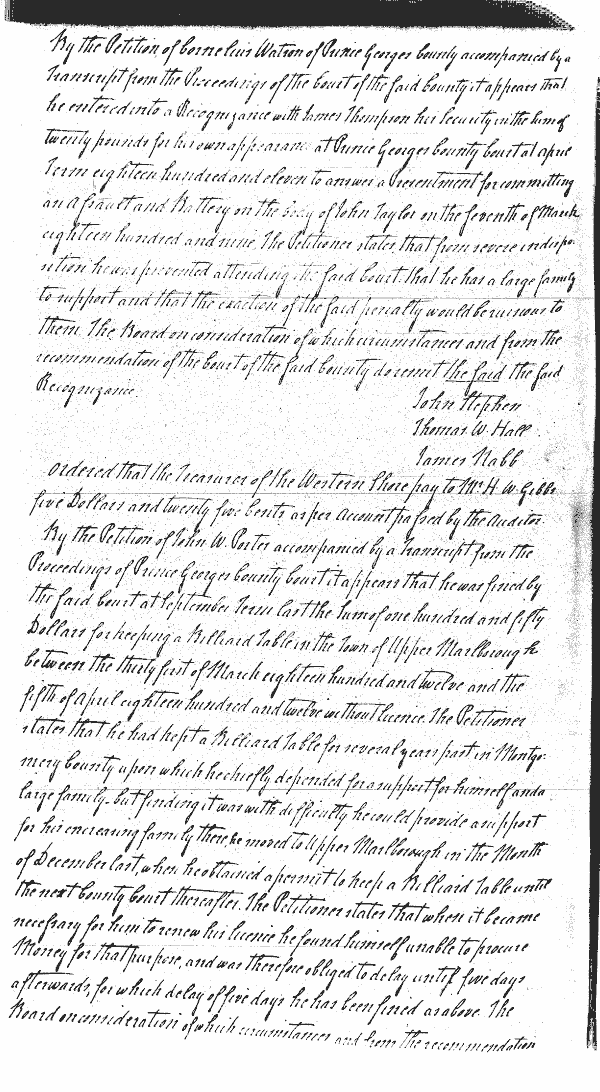 By the Petition of Cornelius Watson of Prince Georges County accompanied by a
Transcript from the Proceedings of the Court of the said County it appears that
he entered into a Recognizance with James Thompson his Security in the sum of
twenty pounds for his own appearance at Prince Georges County Court at April
Term eighteen hundred and eleven to answer a Presentment for committing
an Assault and Battery on the body of John Taylor on the seventh of March
eighteen hundred and nine. The Petitioner states that from severe indispo-
sition he was prevented attending the said Court, that he has a large family
to support and that the exaction of the said penalty would be ruinous to
them. The Board on consideration of which circumstances and from the
recommendation of the Court of the said County do remit the said the said
Recognizance.
John Stephen
Thomas W. Hall
James Nabb
Ordered that the Treasurer of the Western Shore pay to Mr. H. W. Gibbs
five Dollars and twenty five Cents as per Account passed by the Auditor.
By the Petition of John W. Porter accompanied by a Transcript from the
Proceedings of Prince Georges County Court it appears that he was fined by
the said Court at September Term last the sum of one hundred and fifty
Dollars for keeping a Billiard Table in the Town of Upper Marlborough
between the thirty first of March eighteen hundred and twelve and the
fifth of April eighteen hundred and twelve without licence. The Petitioner
states that he had kept a Billiard Table for several years past in Montgo-
mery County upon which he chiefly depended for a support for himself and a
large family - but finding it was with difficulty he could provide a support
for his encreasing family there, he moved to Upper Marlborough in the Month
of December last, when he obtained a permit to keep a Billiard Table until
the next County Court thereafter. The Petitioner states that when it became
necessary for him to renew his licence he found himself unable to procure
Money for that purpose, and was therefore obliged to delay until five days
afterwards, for which delay of five days he has been fined as above. The
Board on consideration of which circumstances and from the recommendation